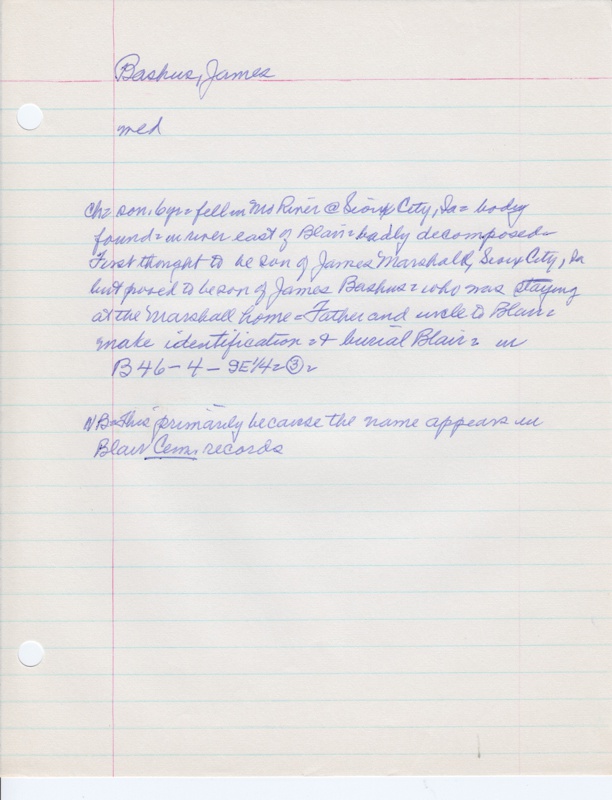 Bashus, James
med
ch= son, 6yr= fell in Mo River @ Sioux City, Ia= body
found= in river east of Blair= badly decomposed=
First thought to be son of James Marshall, Sioux City, Ia
but proved to be son of James Bashus= who was staying
at the Marshall home= Father and uncle to Blair=
make identification= & burial Blair= in
B46-4- SE1/4= ③=
NB=This primarily because the name appears in
Blair Cem. records